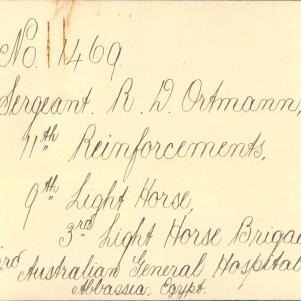 No. 1469.
Sergeant. R. D. Ortmann,
11th Reinforcements,
9th Light Horse,
3rd Light Horse Brigad
3rd Australian General Hospital
Abbassia, Egypt.